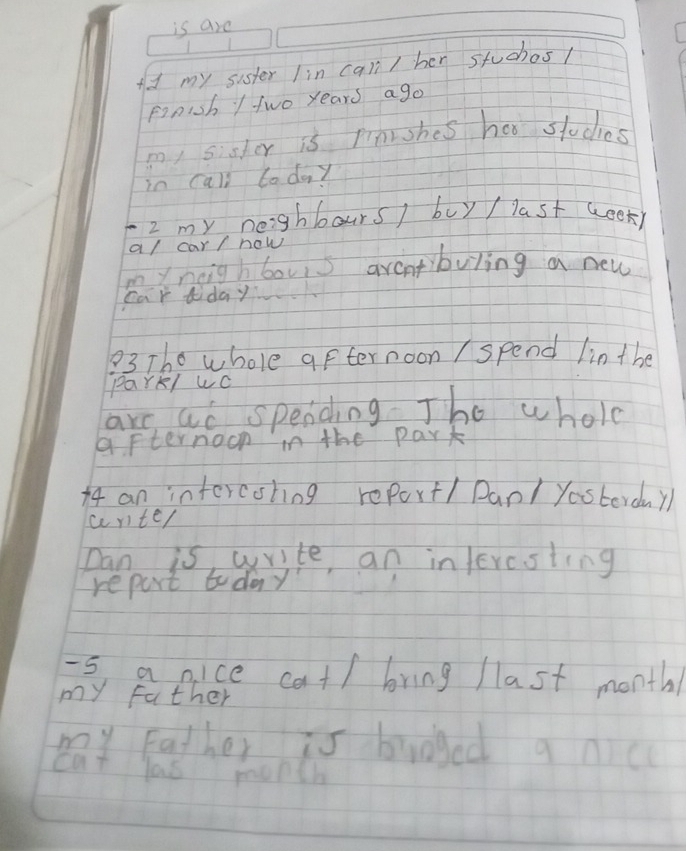 is are
+1 my sister / in cali / her studhos /
Finish / two years ago
my sister is finishes her studies
in cali today
-2 my neighbours / buy / last week /
a / car / new
my neighbours arent buling a new
car today
?3 The whole afternoon / spend / in the
park / we
are we spending The whole
afternoon in the park
+4 an interesting report / Dan / yesterday /
write /
Dan is write an interesting
report today
-5 a nice cat / bring / last month /
my Father
my Father is bringed a nice
cat las month